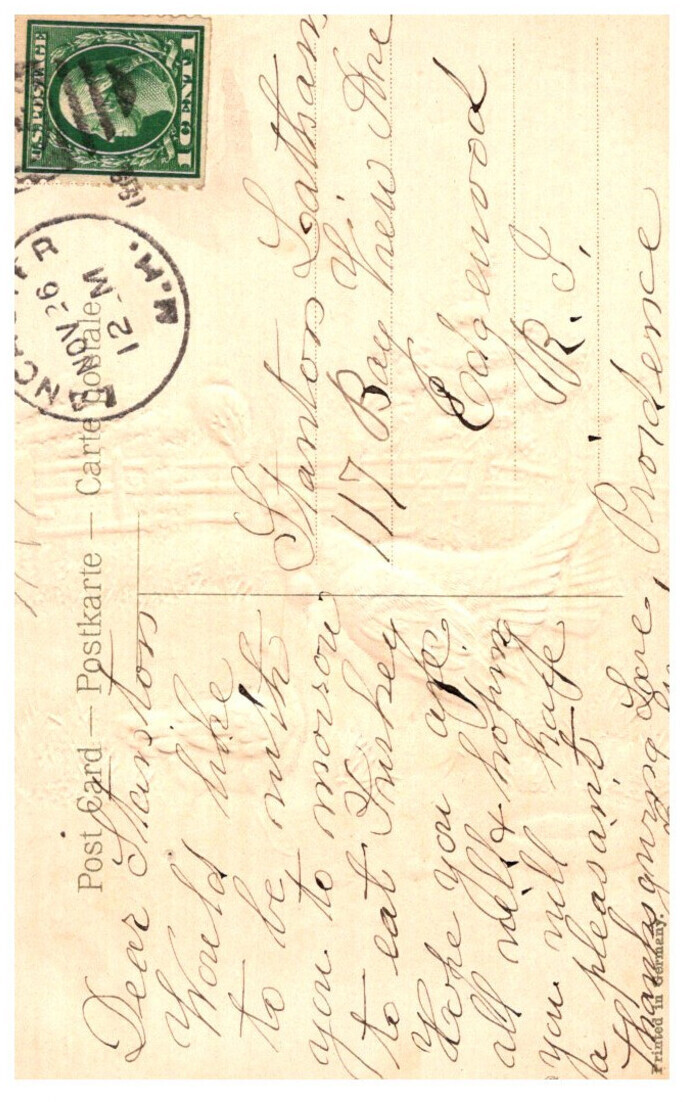 Post Card — Postkarte — Carte postale
U.S. POSTAGE
1 CENT 1
NOV 26
12 M
N.H.
Dear Stanton
Would like
to be with
you to morrow
to eat Turkey
Hope you are
all well & hoping
you will have
a pleasant
Thanksgiving Love,
Stanton Latham
117 Bay View Ave
Edgewood
R. I.
Providence
Printed in Germany.